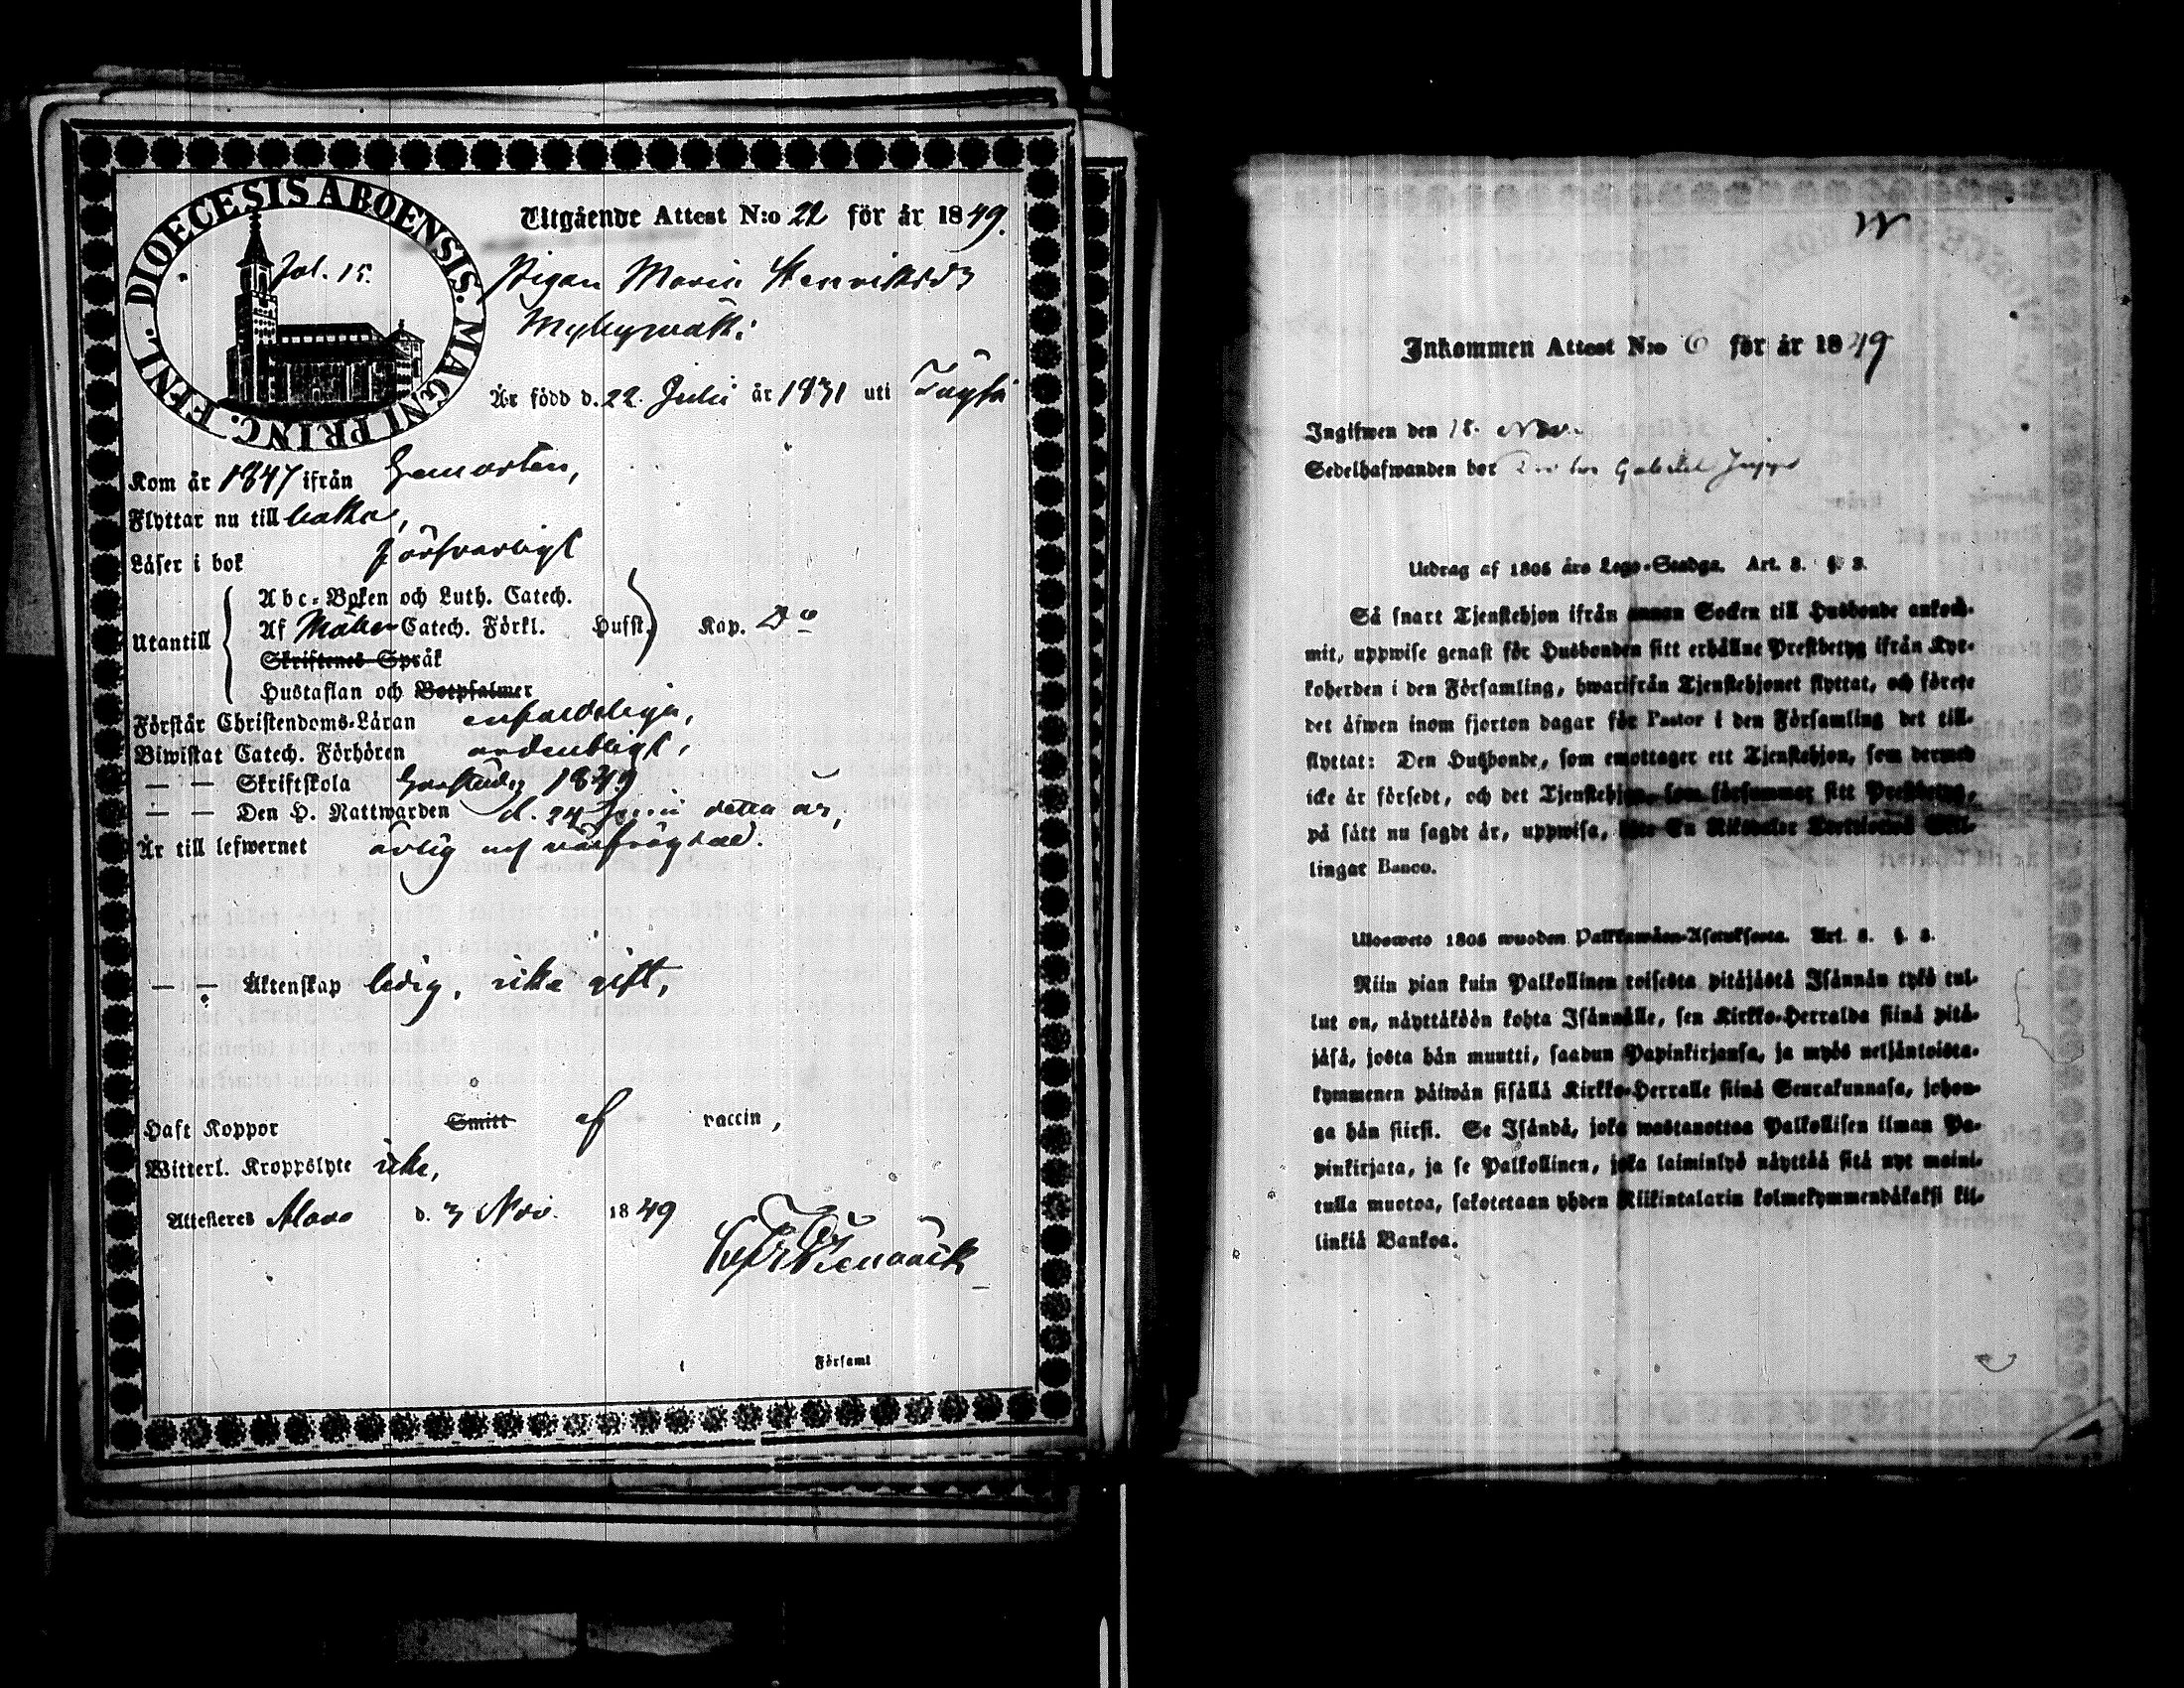 DIOECESIS ABOENSIS. MAGNI PRINC. FENL.
Fol. 15.
Utgående Attest N:o 22 för år 1849.
Pigan Maria Henriksdr
Är född d. 22. Julii år 1831 uti
Kom år 1847 ifrån
Flyttar nu till
Läser i bok försvarligt
Utantill
Abc-Boken och Luth. Catech.
Af Catech. Förkl. Hussl. Kap. Do
Skriftenes Språk
Hustaflan och Botpsalmer
Förstår Christendoms-Läran enfaldeliga,
Biwistat Catech. Förhören ordentligt,
— — Skriftskola
— — Den H. Nattwarden d. 24 detta år,
Är till lefwernet ärlig och wälfrägdad.
— — Äktenskap ledig, icke gift,
Haft Koppor Smitt af vaccin,
Witterl. Kroppslyte icke,
Attesteras Alavo d. 3 Nov. 1849
Församl
Inkommen Attest N:o 6 för år 1849
Ingifwen den 18. Nov.
Sedelhafwanden bor Gabriel
Utdrag af 1805 års Lego-Stadga. Art. 3. §. 3.
Så snart Tjenstehjon ifrån annan Socken till Husbonde ankom-
mit, uppwise genast för Husbonden sitt erhållne Prestbetyg ifrån Kyr-
koherden i den Församling, hwarifrån Tjenstehjonet flyttat, och förete
det äfwen inom fjorton dagar för Pastor i den Församling det till-
flyttat: Den Husbonde, som emottager ett Tjenstehjon, som dermed
icke är försedt, och det Tjenstehjon, som försummar sitt Prestbetyg,
på sätt nu sagdt är, uppwisa, böte En Riksdaler Skil-
lingar Banco.
Uloswеto 1805 wuoden Palkkawäen-Asetuksesta. Art. 3. §. 3.
Niin pian kuin Palkollinen toisesta pitäjästä Isännän tykö tul-
lut on, näyttäköön kohta Isännälle, sen Kirkko-Herralda siinä pitä-
jäsä, josta hän muutti, saadun Papinkirjansa, ja myös neljäntoista-
kymmenen päiwän sisällä Kirkko-Herralle siinä Seurakunnasa, johon-
ga hän siirsi. Se Isändä, joka wastanottaa Palkollisen ilman Pa-
pinkirjata, ja se Palkollinen, joka laiminlyö näyttää sitä nyt maini-
tulla muotoa, sakotetaan yhden Riikintalarin kolmekymmendäkaksi kil-
linkiä Bankoa.